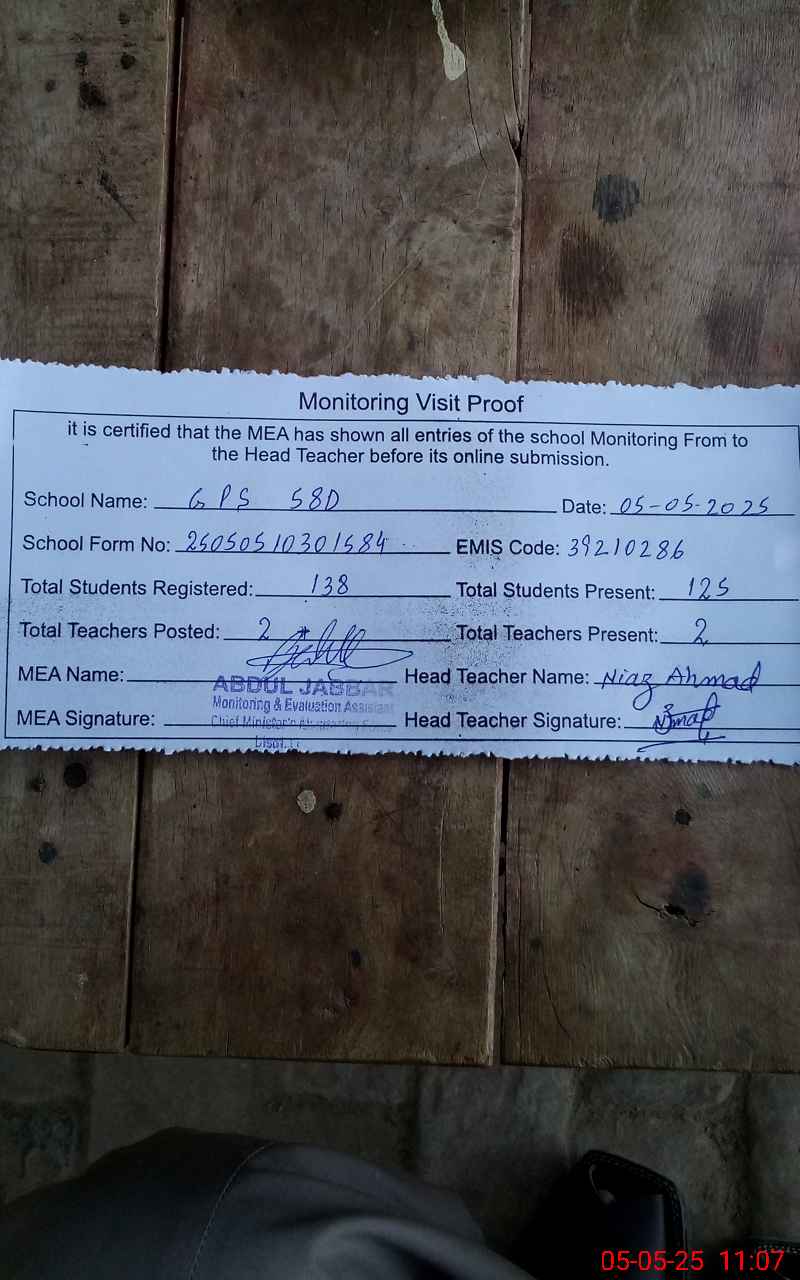 Monitoring Visit Proof
it is certified that the MEA has shown all entries of the school Monitoring From to
the Head Teacher before its online submission.
School Name: GPS 58D Date: 05-05-2025
School Form No: 25050510301584 EMIS Code: 39210286
Total Students Registered: 138 Total Students Present: 125
Total Teachers Posted: 2 Total Teachers Present: 2
MEA Name: Head Teacher Name: Niaz Ahmad
ABDUL JABBAR
Monitoring & Evaluation Assistant
MEA Signature: Head Teacher Signature:
Chief Minister's
05-05-25 11:07